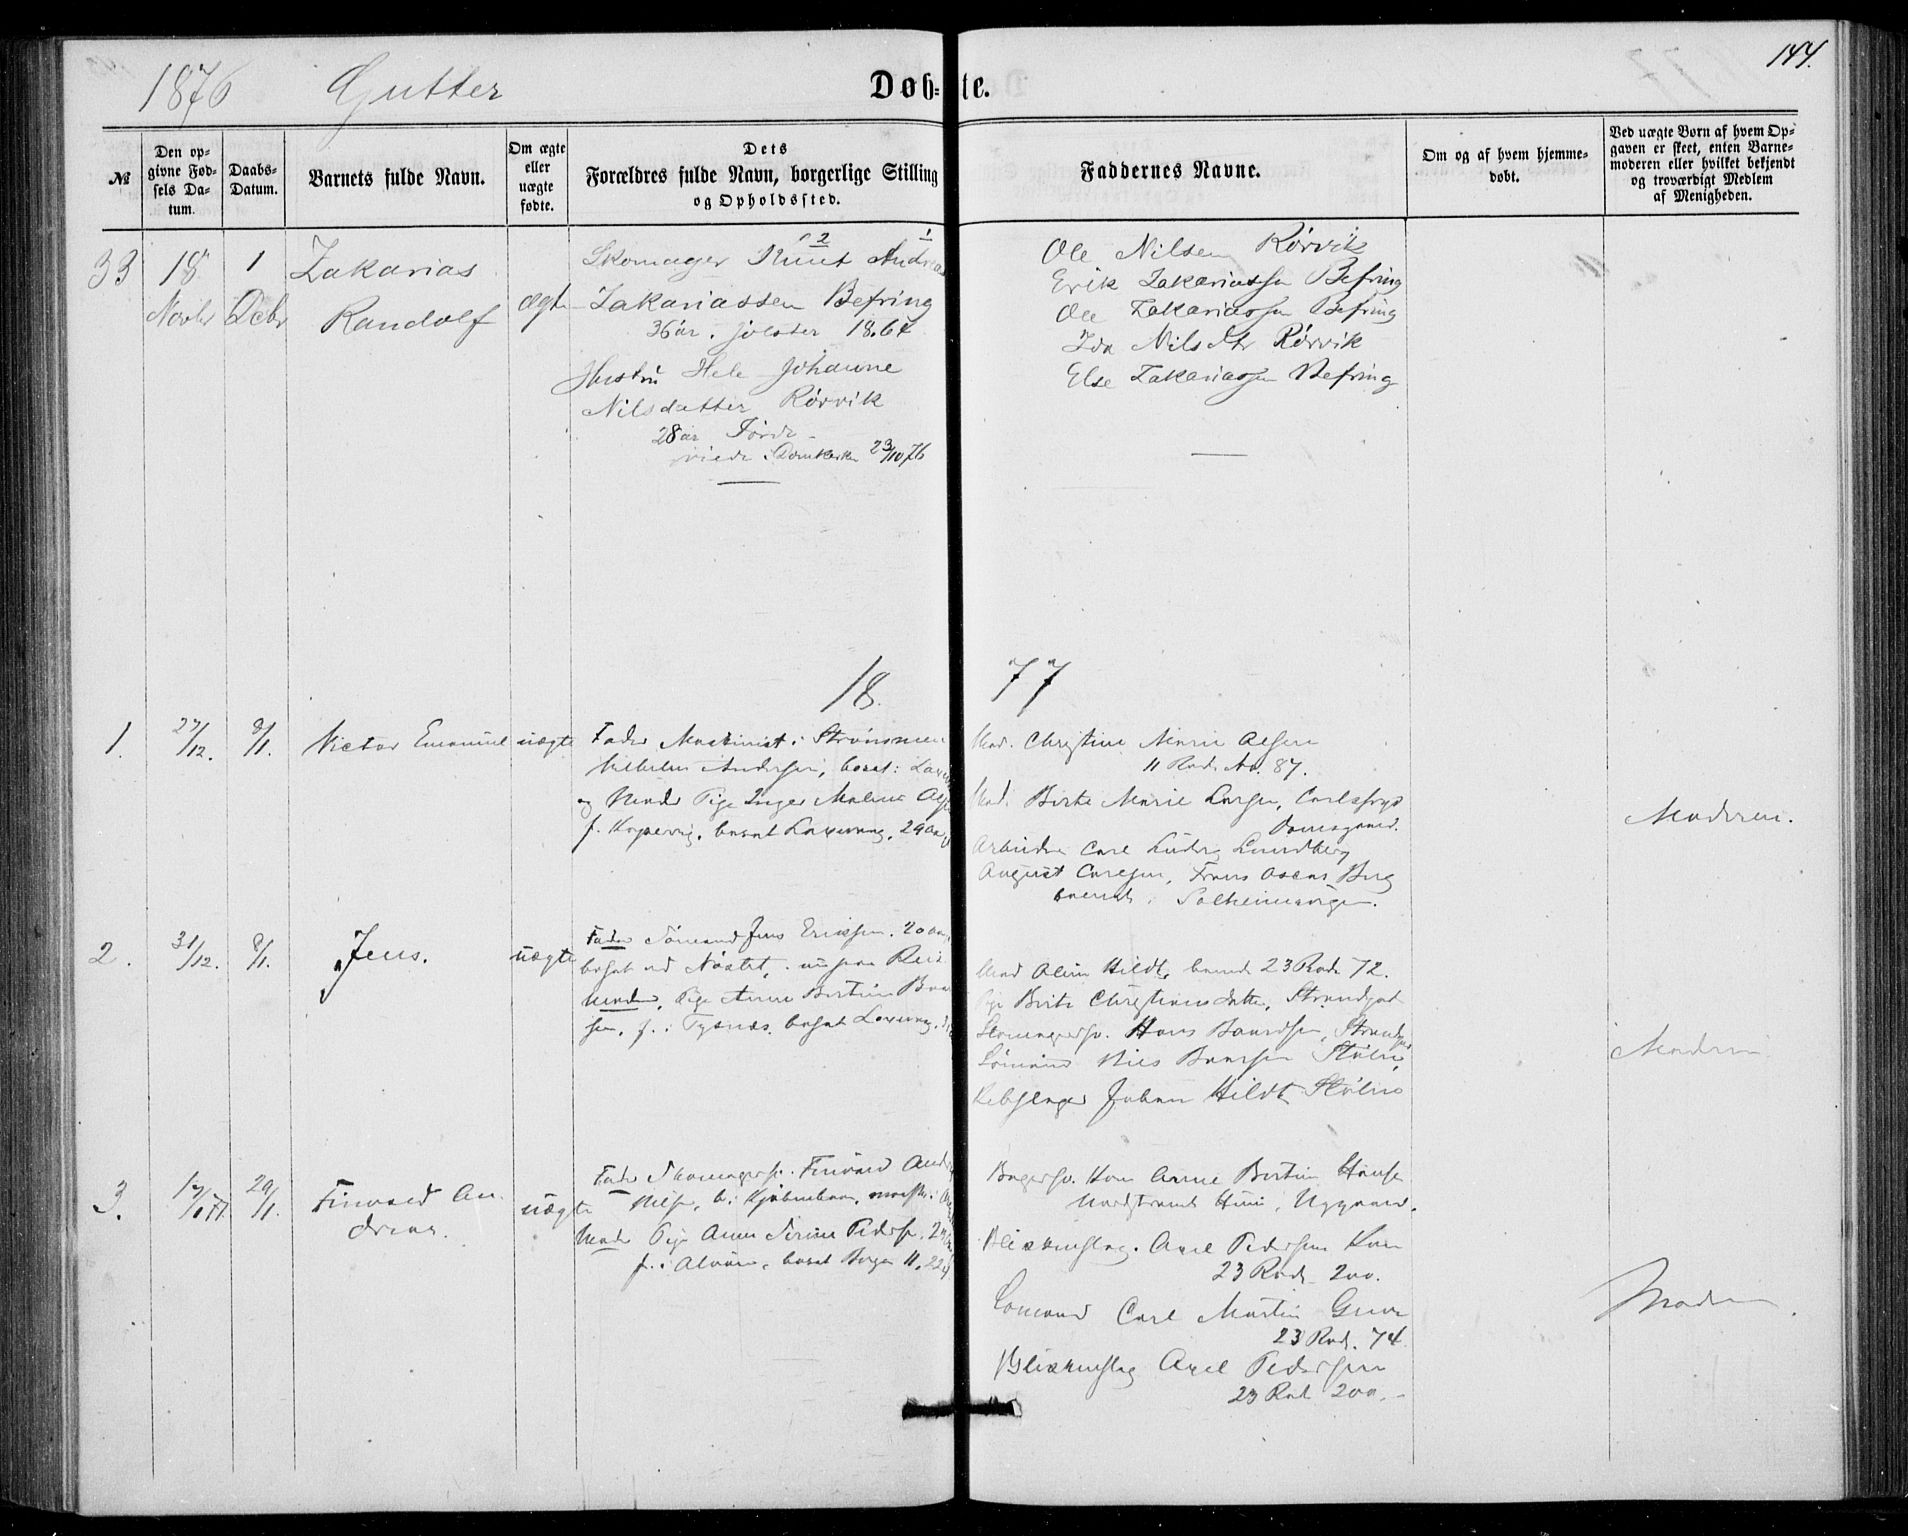 144.
1876 Gutter
Døb-te.
№
Den op-
givne Fød-
sels Da-
tum.
Daabs-
Datum.
Barnets fulde Navn.
Om ægte
eller
uægte
fødte.
Dets
Forældres fulde Navn, borgerlige Stilling
og Opholdssted.
Faddernes Navne.
Om og af hvem hjemme-
døbt.
Ved uægte Børn af hvem Op-
gaven er skeet, enten Barne-
moderen eller hvilket bekjendt
og troværdigt Medlem
af Menigheden.
33
18
Novbr
1
Debr
Zakarias
Randolf
ægte
2 1
Skomager Knut Andreas
Zakariassen Befring
36 år. Jølster 18.64
Hustru Hele Johanne
Nilsdatter Rørvik
28 år Førde
viede i Domkirken 23/10 76
Ole Nilsen Rørvik
Erik Zakariassen Befring
Ole Zakariassen Befring
Ida Nilsdtr Rørvik
Else Zakariassen Befring
18 77
1.
27/12.
8/1.
Victor Emanuel
uægte
Fader Maskinist i
Andersen, bosat i
og Moder Pige Inger Malene
f. Kopervig, bosat Laxevaag, 29 Aar
Mad. Christine Marie Olsen
11 Rode No. 87.
Mad. Birte Marie Larsen,
Damsgaard.
Arbeider Carl Ludvig Lundberg
August Carlsen, Frans Oscar Berg
boende i Solheimsvigen.
Moderen.
2.
31/12.
8/1.
Jens.
uægte
Fader Sømand Jens Ericksen. 20 Aar,
bosat ved Nøstet, nu paa Reis
Moder, Pige Anne Bertine
f. i Tysnæs, bosat Laxevaag,
Mad Oline Hildt, boende 23 Rode 72.
Pige Birte Christiansdatter, Strandgad
Skomagersv. Hans Baardsen, Strandgad
Sømand Nils
Rebslager Johan Hildt Stølen
Moderen
3.
17/1 77.
29/1.
Finvard An-
dreas.
uægte
Fader Skomagersv. Finvard
Nilsen, b. i Kjøbenhavn,
Moder Pige Anne Serine Pedersen,
f. i Alvøen, bosat Bergen 11.
Bagersv. Kone Anne Bertine Hansen
Blikkenslag. Axel Pedersen Kone
23 Rode 200.
Sømand Carl Martin
23 Rode. 74
Blikkenslag Axel Pedersen
23 Rod 200.
Moderen.